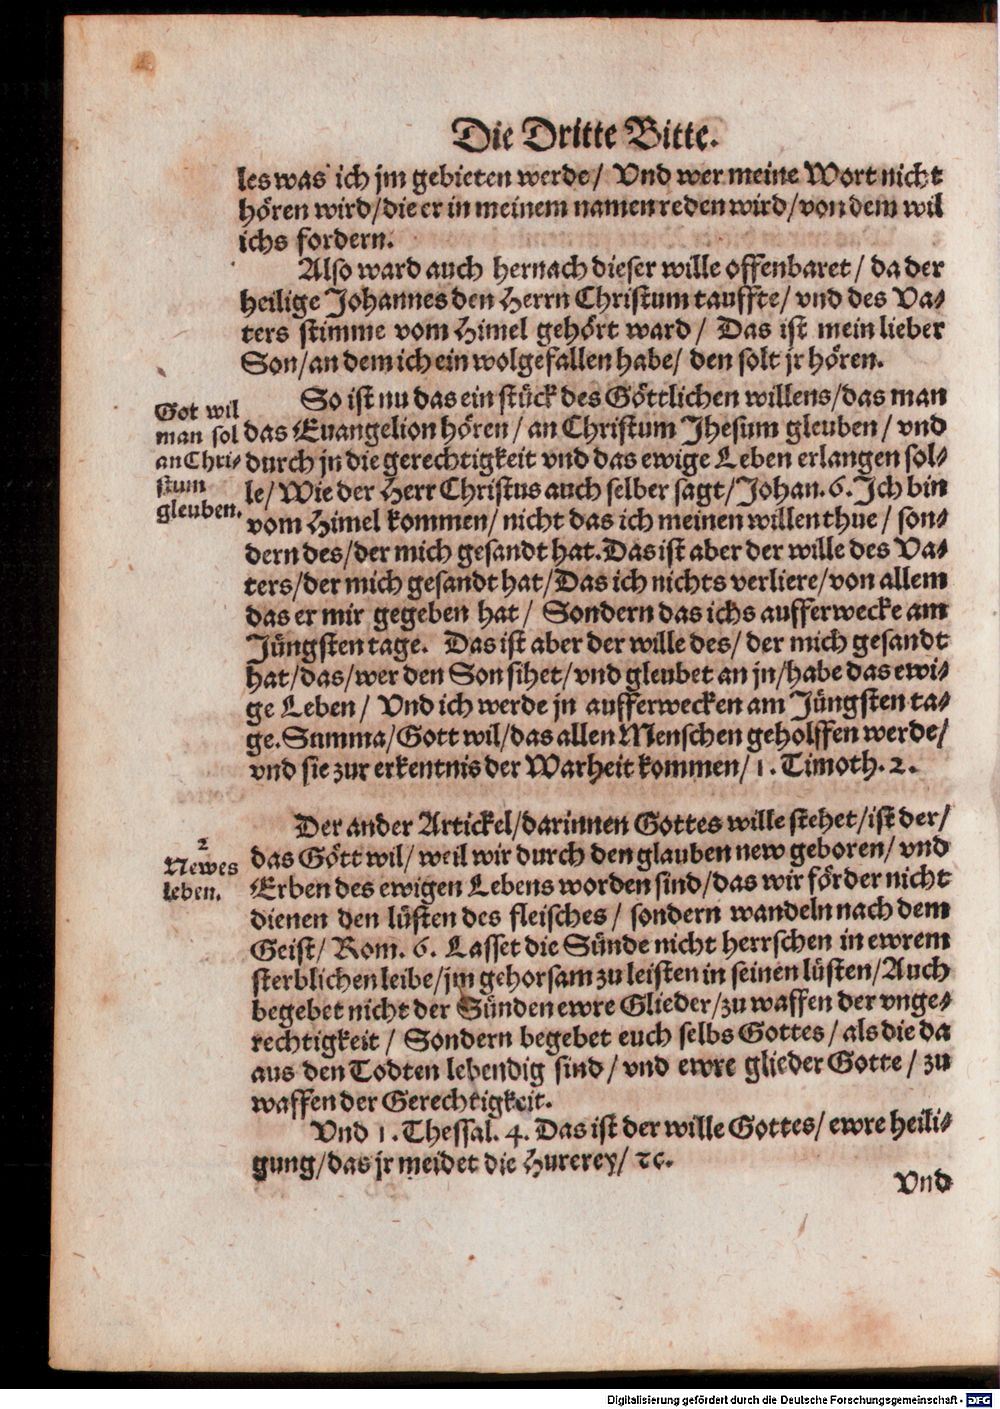 Die Dritte Bitte.
les was ich jm gebieten werde/ Vnd wer meine Wort nicht
hören wird/die er in meinem namen reden wird/von dem wil
ichs fordern.
Also ward auch hernach dieser wille offenbaret/ da der
heilige Johannes den Herrn Christum tauffte/ vnd des Va-
ters stimme vom Himel gehört ward/ Das ist mein lieber
Son/an dem ich ein wolgefallen habe/ den solt jr hören.
Got wil
man sol
an Chri-
stum
gleuben.
So ist nu das ein stück des Göttlichen willens/das man
das Euangelion hören/ an Christum Jhesum gleuben/ vnd
durch jn die gerechtigkeit vnd das ewige Leben erlangen sol-
le/ Wie der Herr Christus auch selber sagt/Johan. 6. Ich bin
vom Himel kommen/ nicht das ich meinen willen thue/ son-
dern des/der mich gesandt hat. Das ist aber der wille des Va-
ters/der mich gesandt hat/Das ich nichts verliere/von allem
das er mir gegeben hat/ Sondern das ichs aufferwecke am
Jüngsten tage. Das ist aber der wille des/ der mich gesandt
hat/das/wer den Son sihet/vnd gleubet an jn/habe das ewi-
ge Leben/ Vnd ich werde jn aufferwecken am Jüngsten ta-
ge. Summa/Gott wil/das allen Menschen geholffen werde/
vnd sie zur erkentnis der Warheit kommen/ 1. Timoth. 2.
2
Newes
leben.
Der ander Artickel/darinnen Gottes wille stehet/ist der/
das Gött wil/ weil wir durch den glauben new geboren/ vnd
Erben des ewigen Lebens worden sind/das wir förder nicht
dienen den lüsten des fleisches/ sondern wandeln nach dem
Geist/ Rom. 6. Lasset die Sünde nicht herrschen in ewrem
sterblichen leibe/jm gehorsam zu leisten in seinen lüsten/Auch
begebet nicht der Sünden ewre Glieder/zu waffen der vnge-
rechtigkeit/ Sondern begebet euch selbs Gottes/ als die da
aus den Todten lebendig sind/ vnd ewre glieder Gotte/ zu
waffen der Gerechtigkeit.
Vnd 1. Thessal. 4. Das ist der wille Gottes/ ewre heili-
gung/das jr meidet die Hurerey/ ꝛc.
Vnd
Digitalisierung gefördert durch die Deutsche Forschungsgemeinschaft - DFG